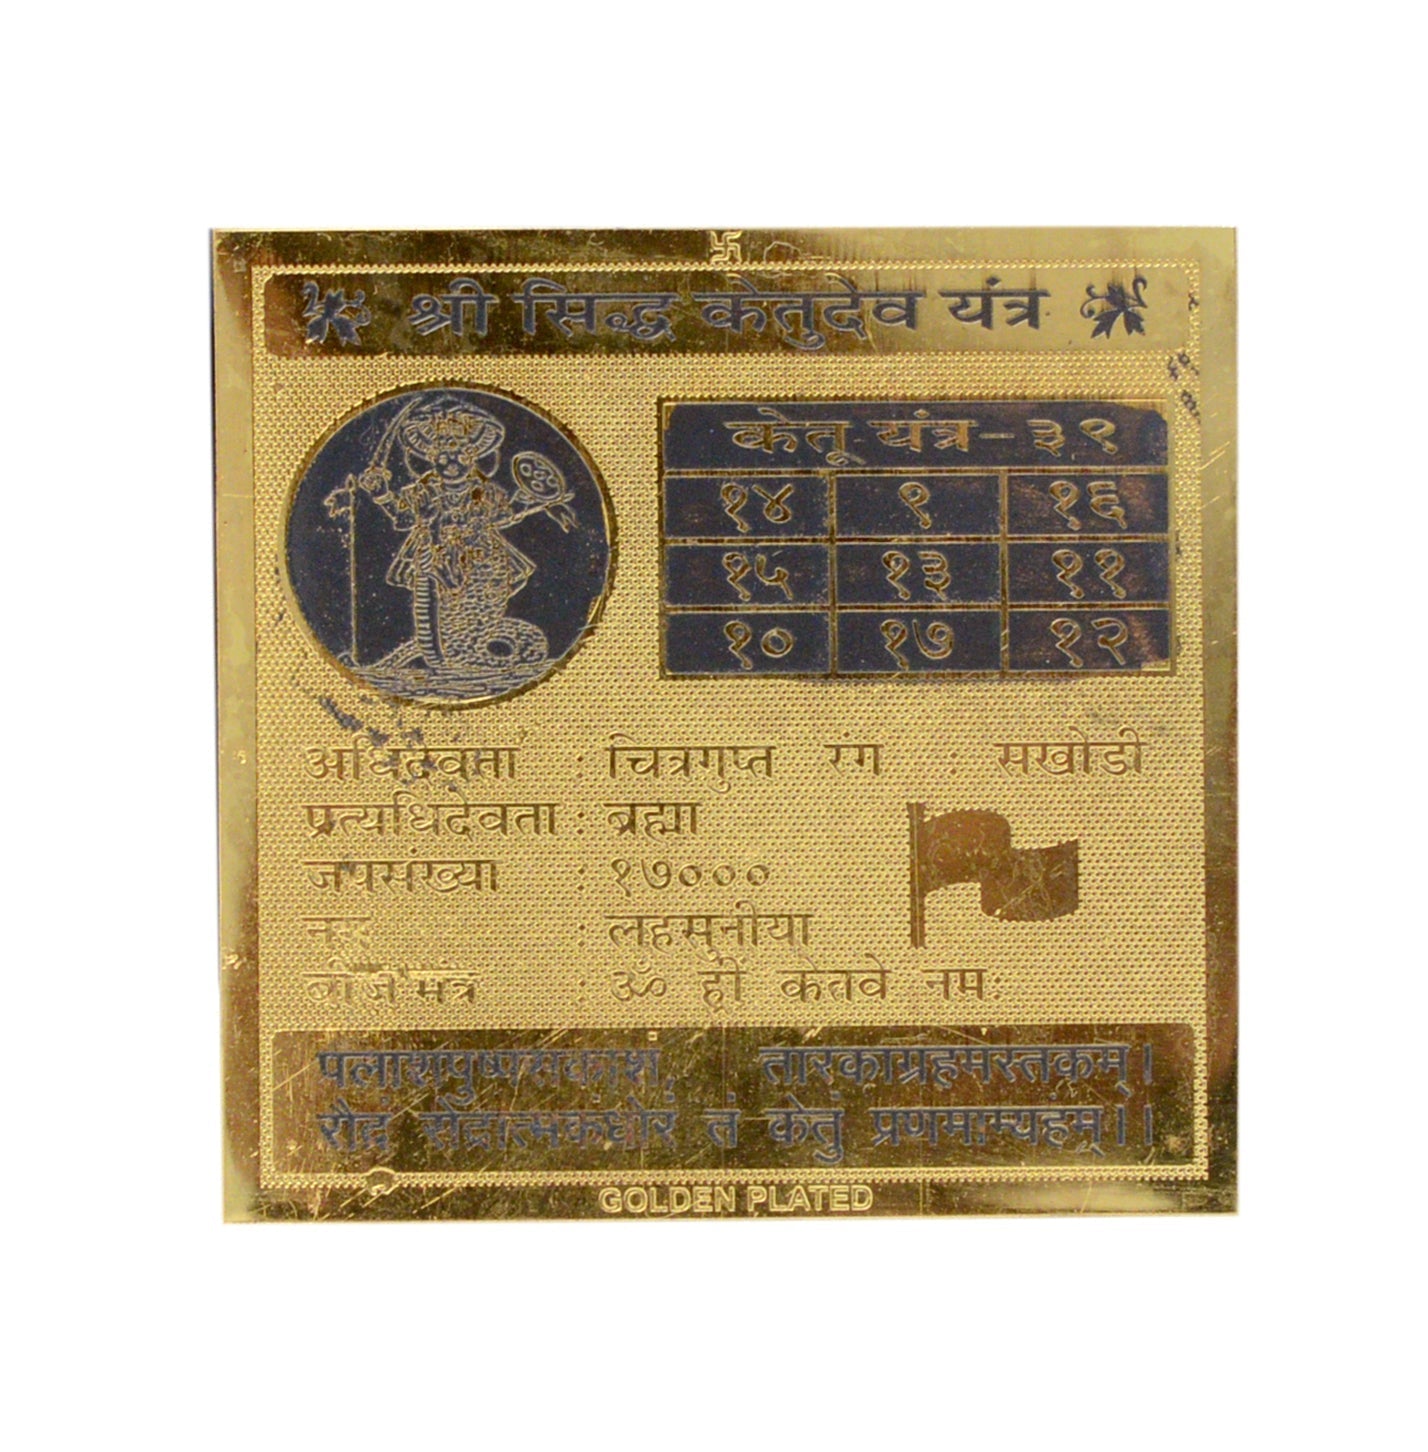 श्री सिद्ध केतुदेव यंत्र
केतू यंत्र-३९
१४ ९ १६
१५ १३ ११
१० १७ १२
अधिदेवता : चित्रगुप्त रंग : सखोडी
प्रत्यधिदेवता : ब्रह्मा
जपसंख्या : १७०००
: लहसुनीया
बीज मंत्र : ॐ ह्रीं केतवे नमः
पलाशपुष्पसकाशं, तारकाग्रहमस्तकम्।
रौद्रं रोद्रात्मकंघोरं तं केतुं प्रणमाम्यहंम्।।
GOLDEN PLATED